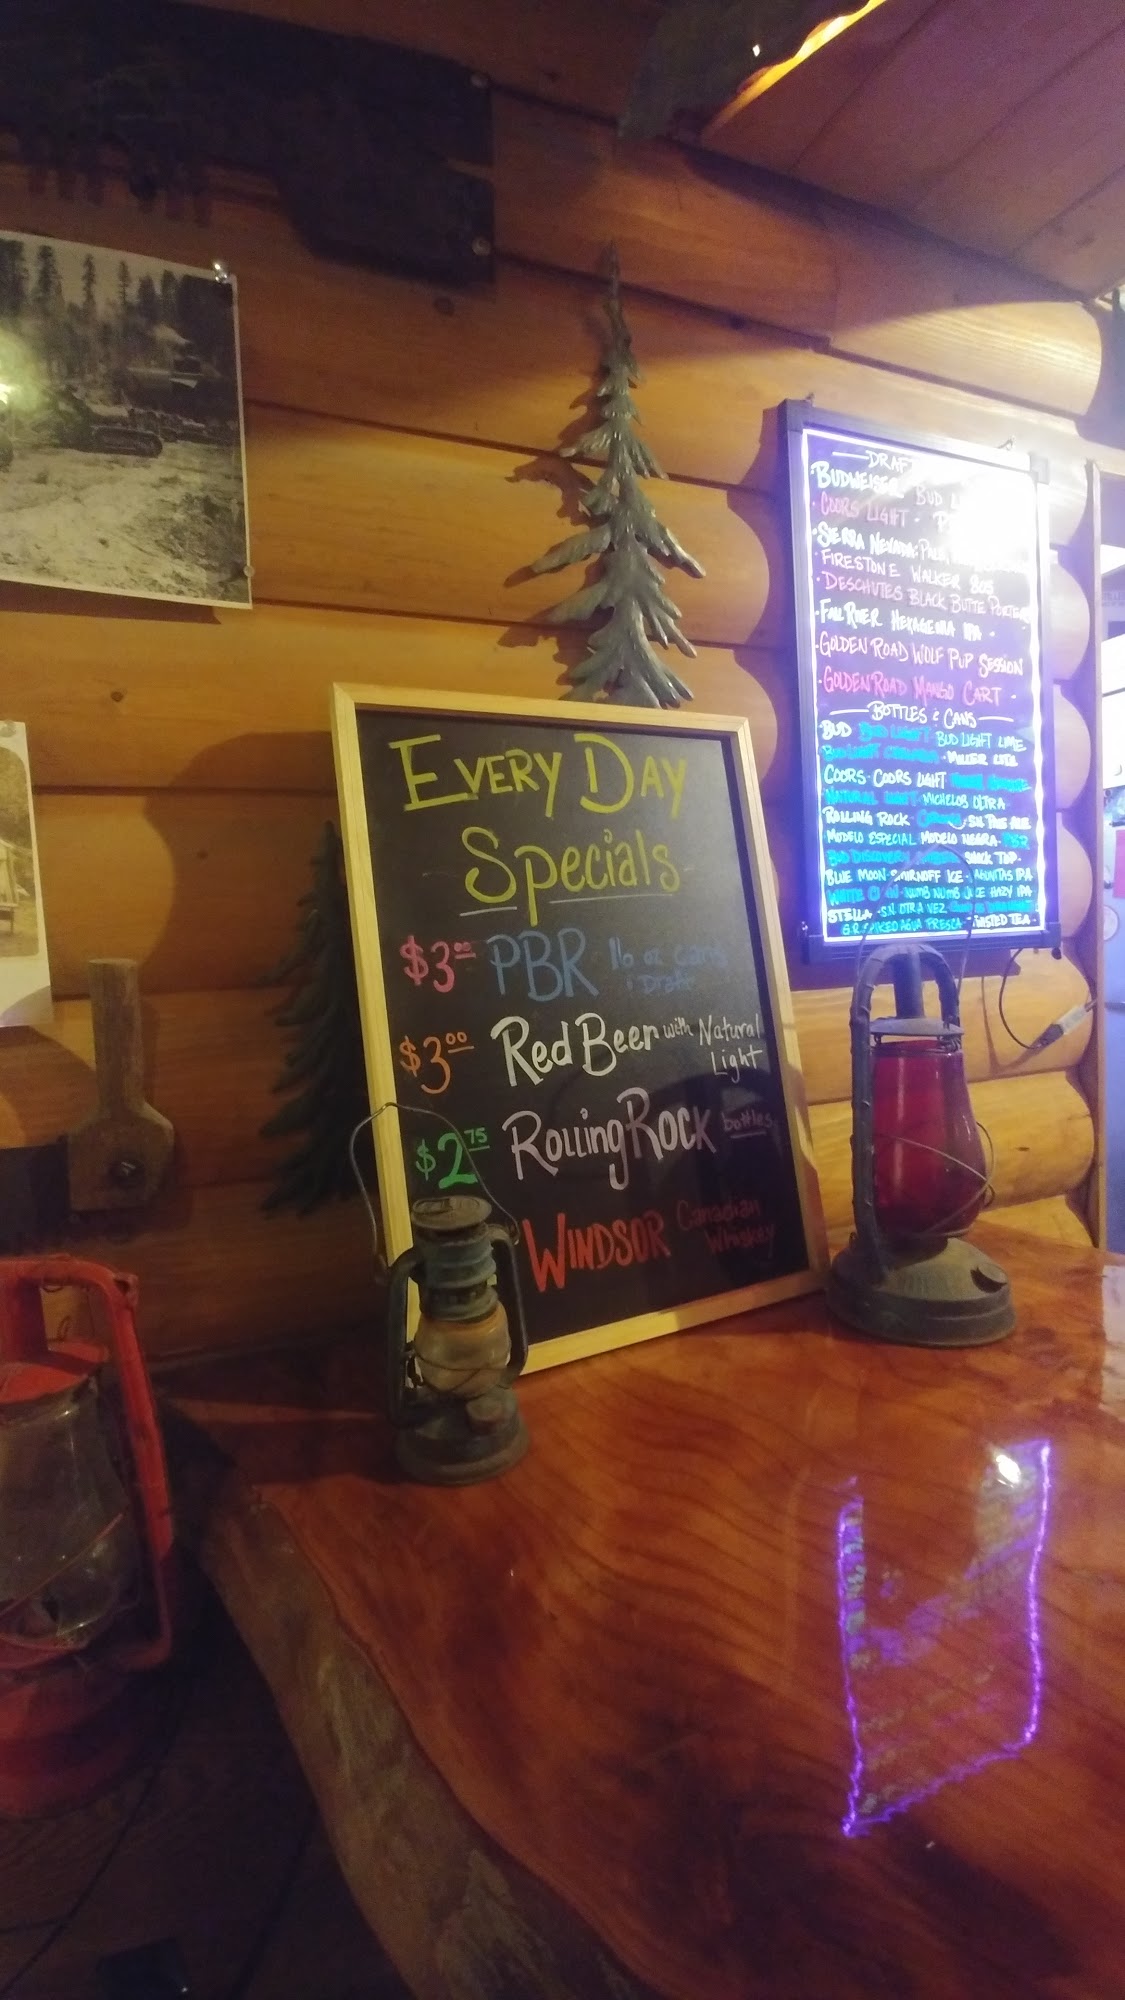 EVERY DAY
Specials
$3.00 PBR 16 oz cans
& Draft
$3.00 Red Beer with Natural
Light
$2.75 Rolling Rock bottles
WINDSOR Canadian
Whiskey
DRAFT
BUDWEISER BUD
COORS LIGHT
SIERRA NEVADA: PALE,
FIRESTONE WALKER 805
DESCHUTES BLACK BUTTE PORTER
FALL RIVER HEXAGENIA IPA
GOLDEN ROAD WOLF PUP SESSION
GOLDEN ROAD MANGO CART
BOTTLES & CANS
BUD BUD LIGHT BUD LIGHT LIME
BUD LIGHT MILLER LITE
COORS COORS LIGHT
NATURAL LIGHT MICHELOB ULTRA
ROLLING ROCK CORONA S.N. PALE ALE
MODELO ESPECIAL MODELO NEGRA PBR
BUD DISCOVERY SHOCK TOP
BLUE MOON SMIRNOFF ICE LAGUNITAS IPA
WHITE NUMB NUMB JUICE HAZY IPA
STELLA S.N. OTRA VEZ
G.R. SPIKED AGUA FRESCA TWISTED TEA